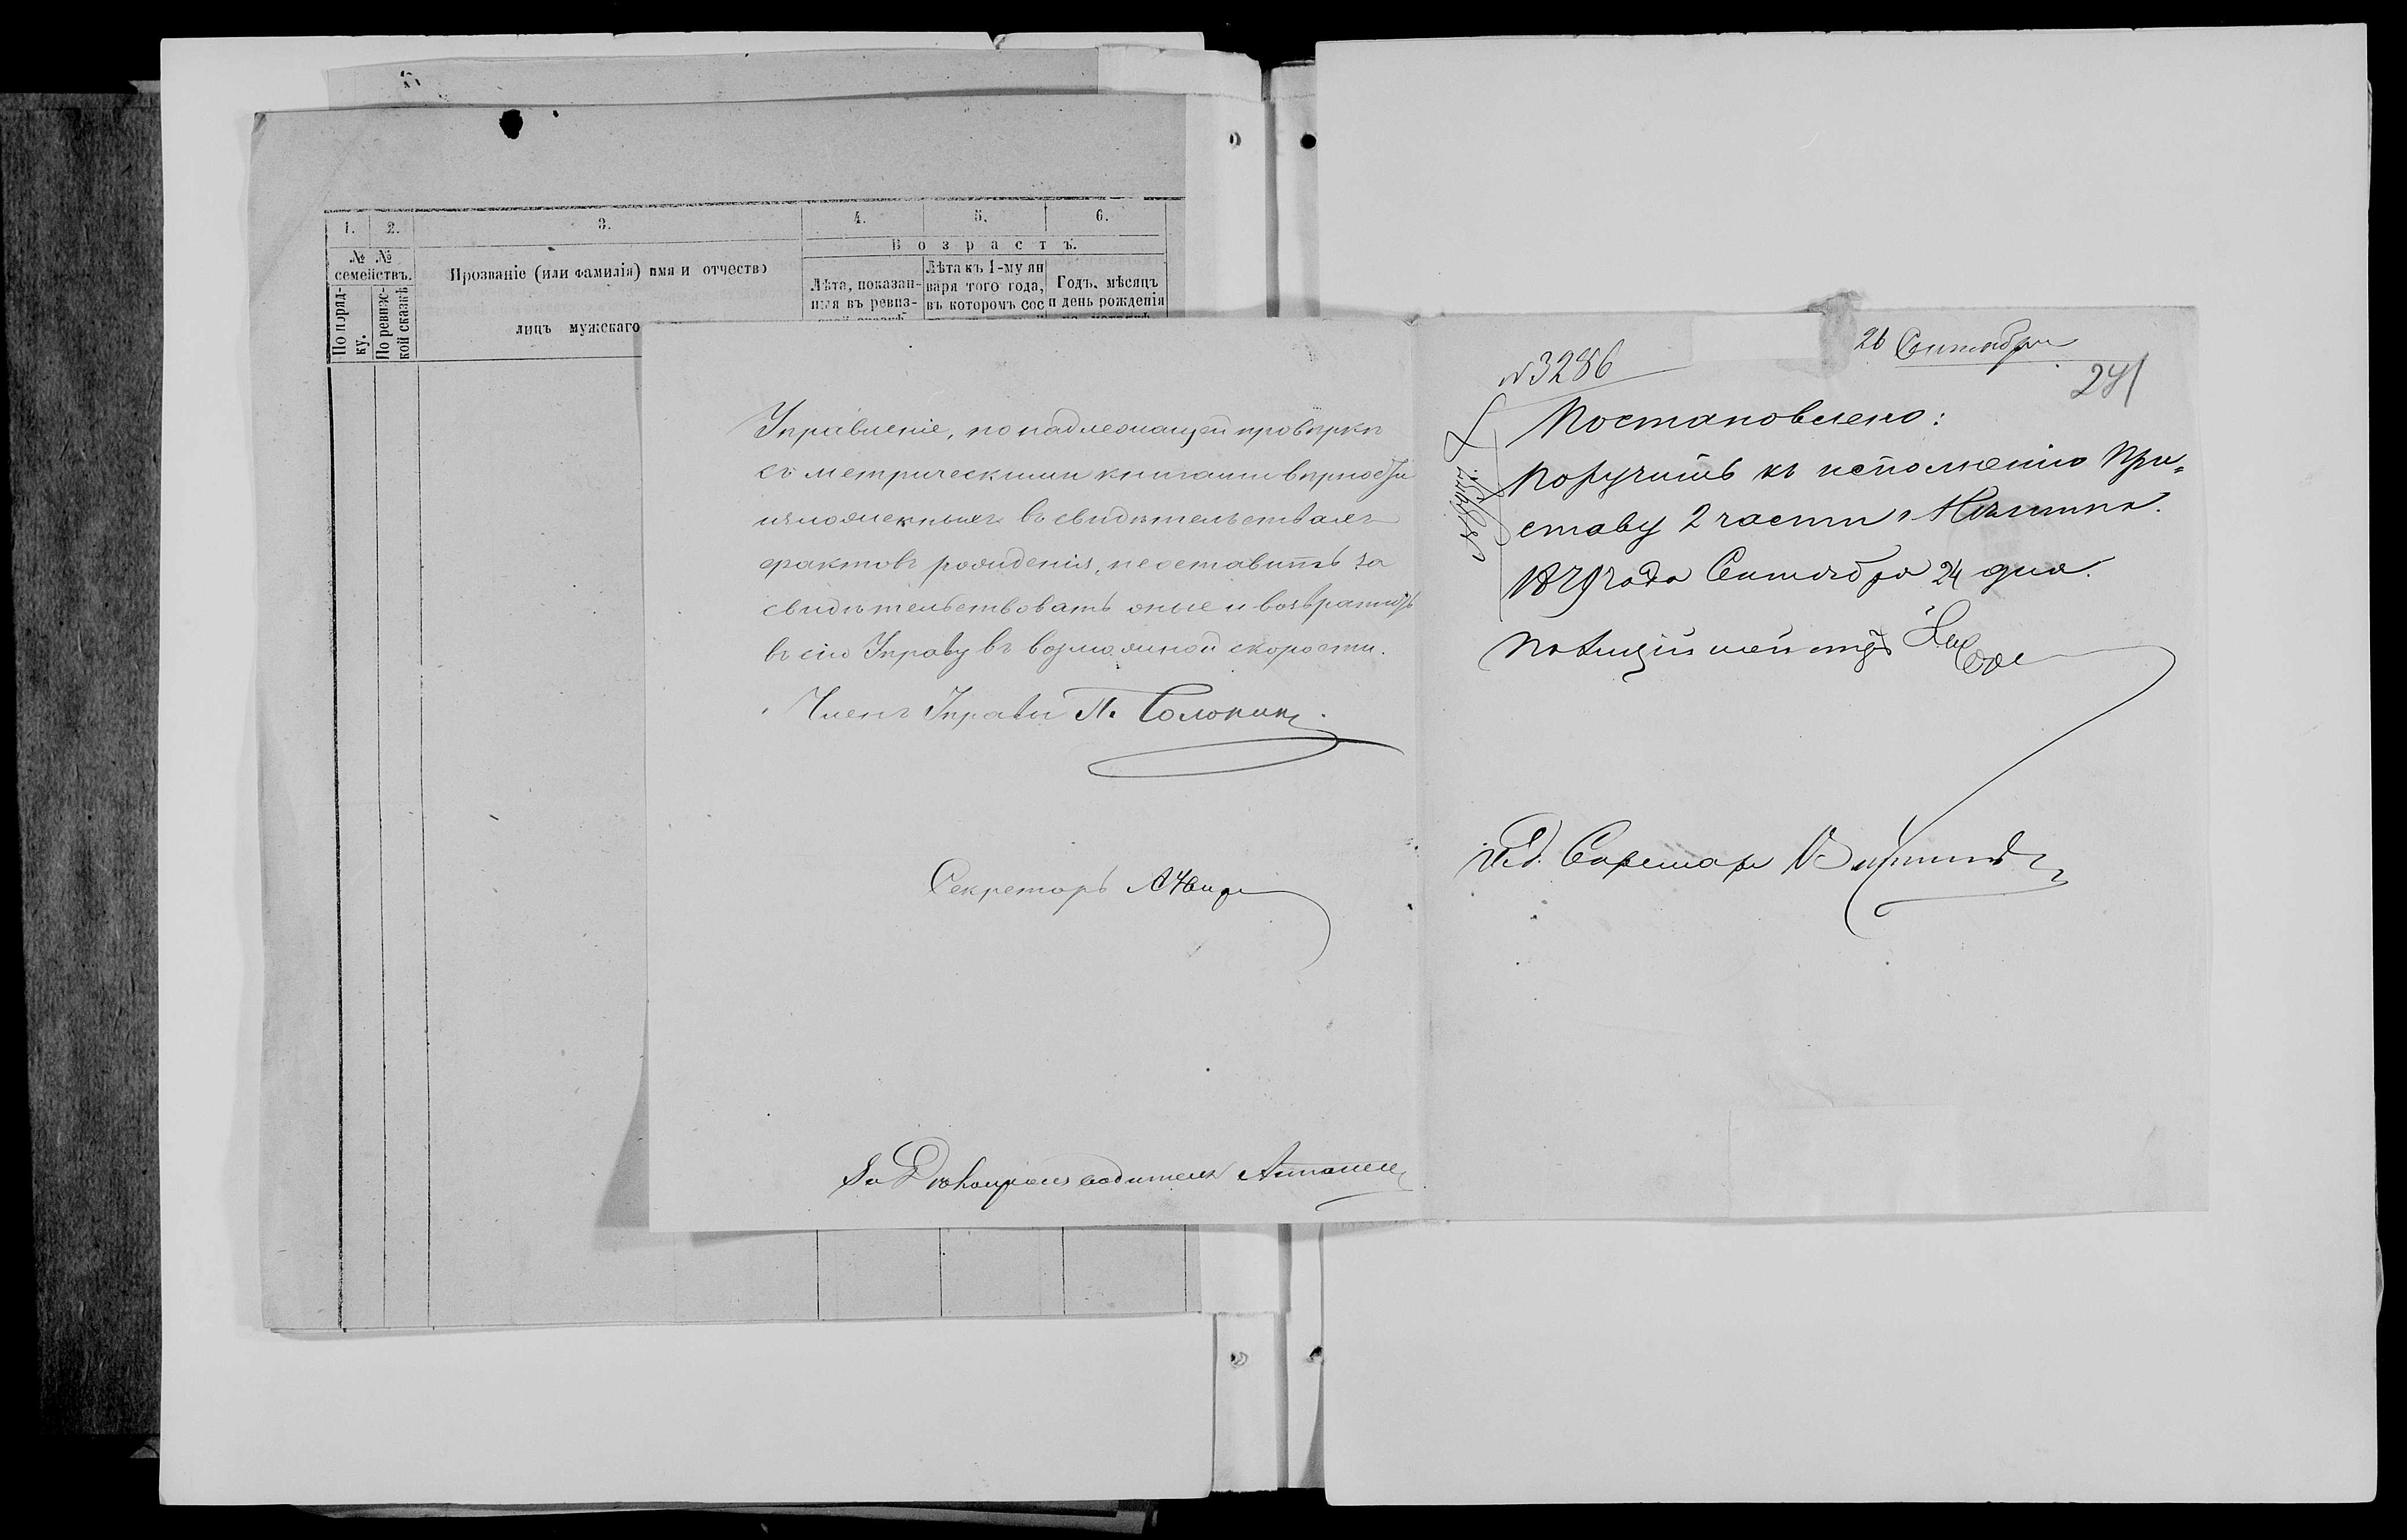 1. 2. 3. 4. 5. 6.
Возрастъ.
№ №
семействъ.
По поряд-
ку.
По ревизс-
кой сказкѣ
Прозваніе (или фамилія) имя и отчество
лицъ мужскаго
Лѣта, показан-
ныя въ ревиз-
Лѣта къ 1-му ян
варя того года,
въ которомъ сос
Годъ, мѣсяцъ
и день рожденія
Управленіе, по надлежащей провѣркѣ
съ метрическими книгами вѣрности
изложенныхъ въ свидѣтельствахъ
фактовъ рожденія, неоставить за
свидѣтельствовать оные и возвратить
въ сію Управу въ возможной скорости.
Членъ Управы П. Солонин
Секретарь
За Дѣлопроизводителя
26 Сентября
№ 3286
241
Постановлено:
Поручить къ исполненію При=
ставу 2 части г.
1879 года Сентября 24 дня.
Полиціймейстеръ
И. д. Секретаря